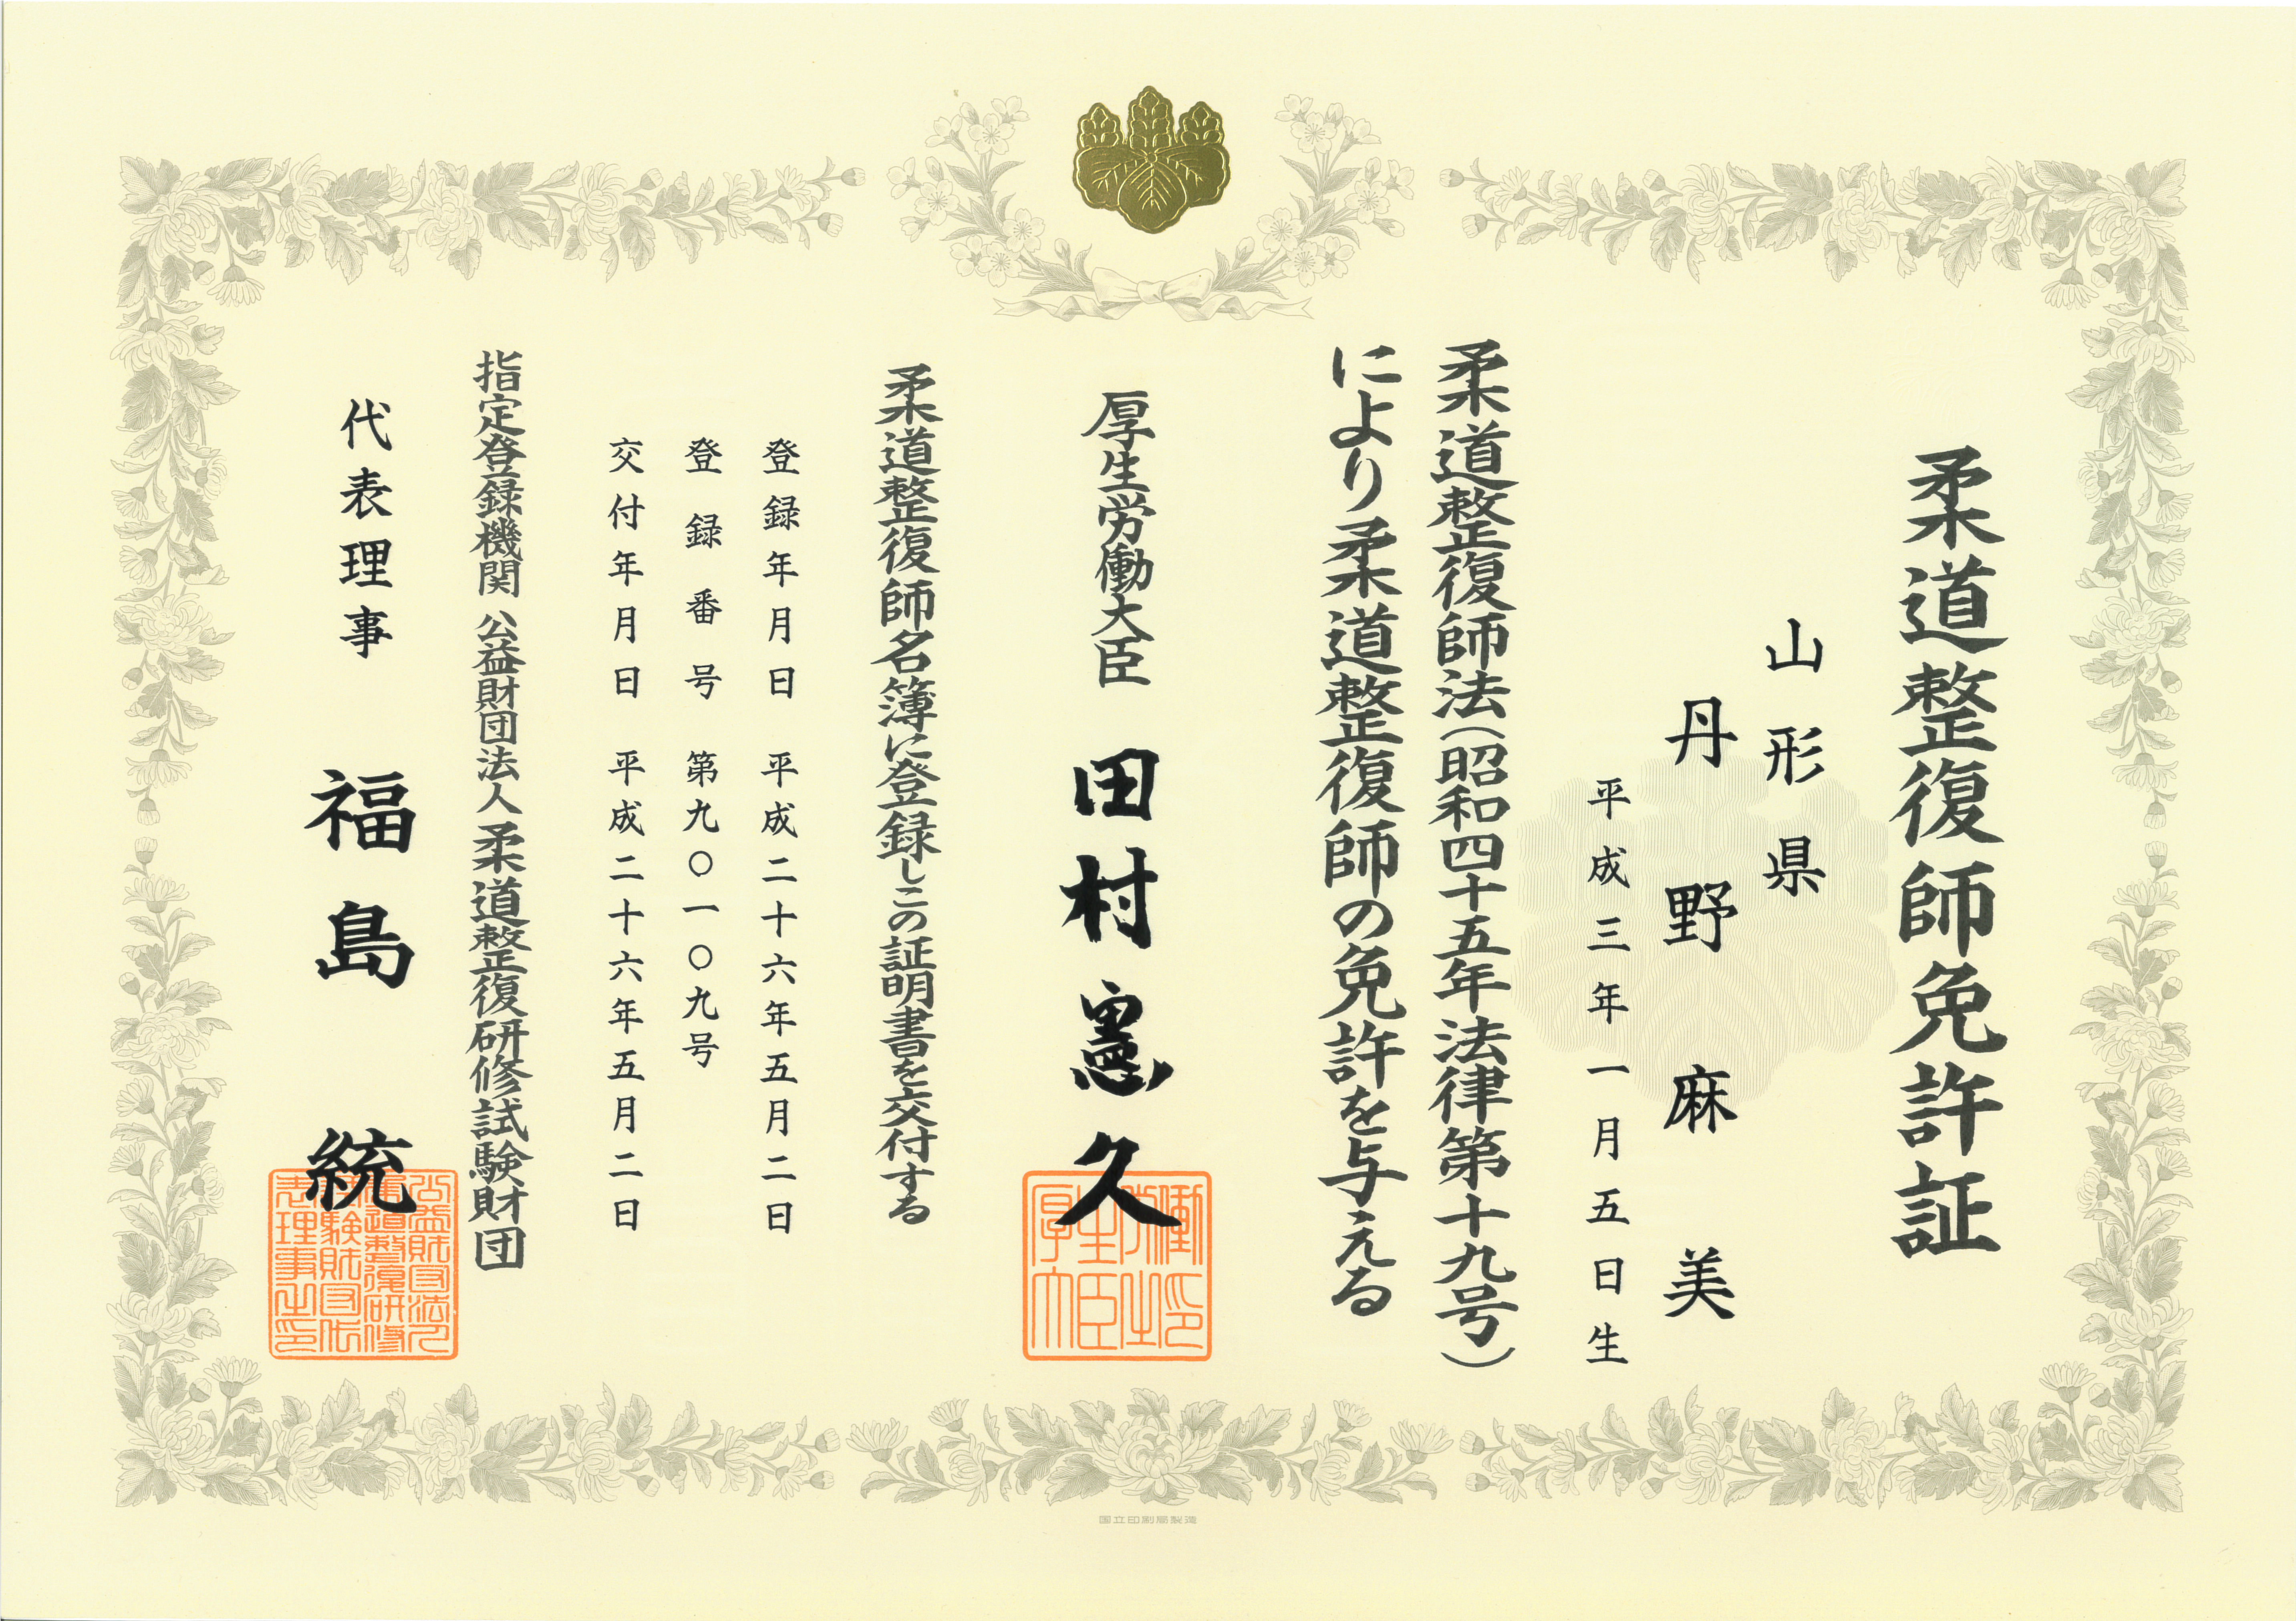 柔道整復師免許証
山形県
丹野麻美
平成三年一月五日生
柔道整復師法(昭和四十五年法律第十九号)
により柔道整復師の免許を与える
厚生労働大臣 田村憲久
厚生労働大臣之印
柔道整復師名簿に登録しこの証明書を交付する
登録年月日 平成二十六年五月二日
登録番号 第九〇一〇九号
交付年月日 平成二十六年五月二日
指定登録機関 公益財団法人柔道整復研修試験財団
代表理事 福島統
公益財団法人柔道整復研修試験財団代表理事之印
国立印刷局製造